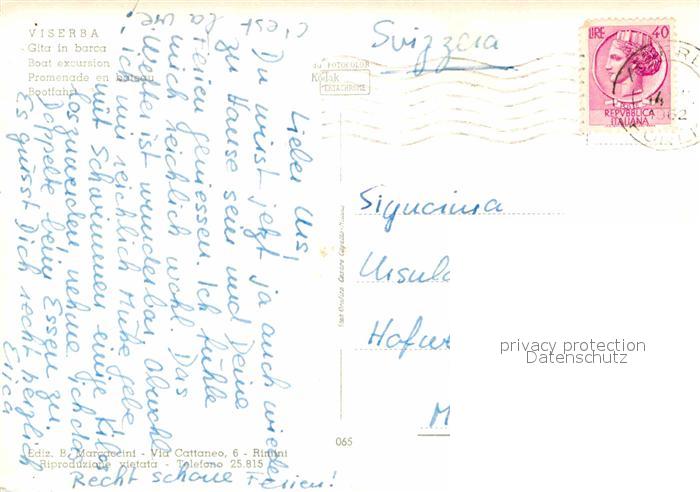 VISERBA
Gita in barca
Boat excursion
Promenade en bateau
Bootfahrt
c'est la vie!
Lieber Urs!
Du wirst jetzt ja auch wieder
zu Hause sein und Deine
Ferien geniessen. Ich fühle
mich reichlich wohl. Das
Wetter ist wunderbar. Obwohl
ich mir reichlich Mühe gebe,
mit Schwimmen einige Kilos
loszuwerden, nehme ich das
Doppelte beim Essen zu.
Es grüsst Dich recht herzlich
Erica
Recht schöne Ferien!
Svizzera
su FOTOCOLOR
Kodak
EKTACHROME
LIRE 40
REPVBBLICA
ITALIANA
Signorina
Ursula
M
privacy protection
Datenschutz
065
Ediz. B. Marcaccini - Via Cattaneo, 6 - Rimini
Riproduzione vietata - Telefono 25.815